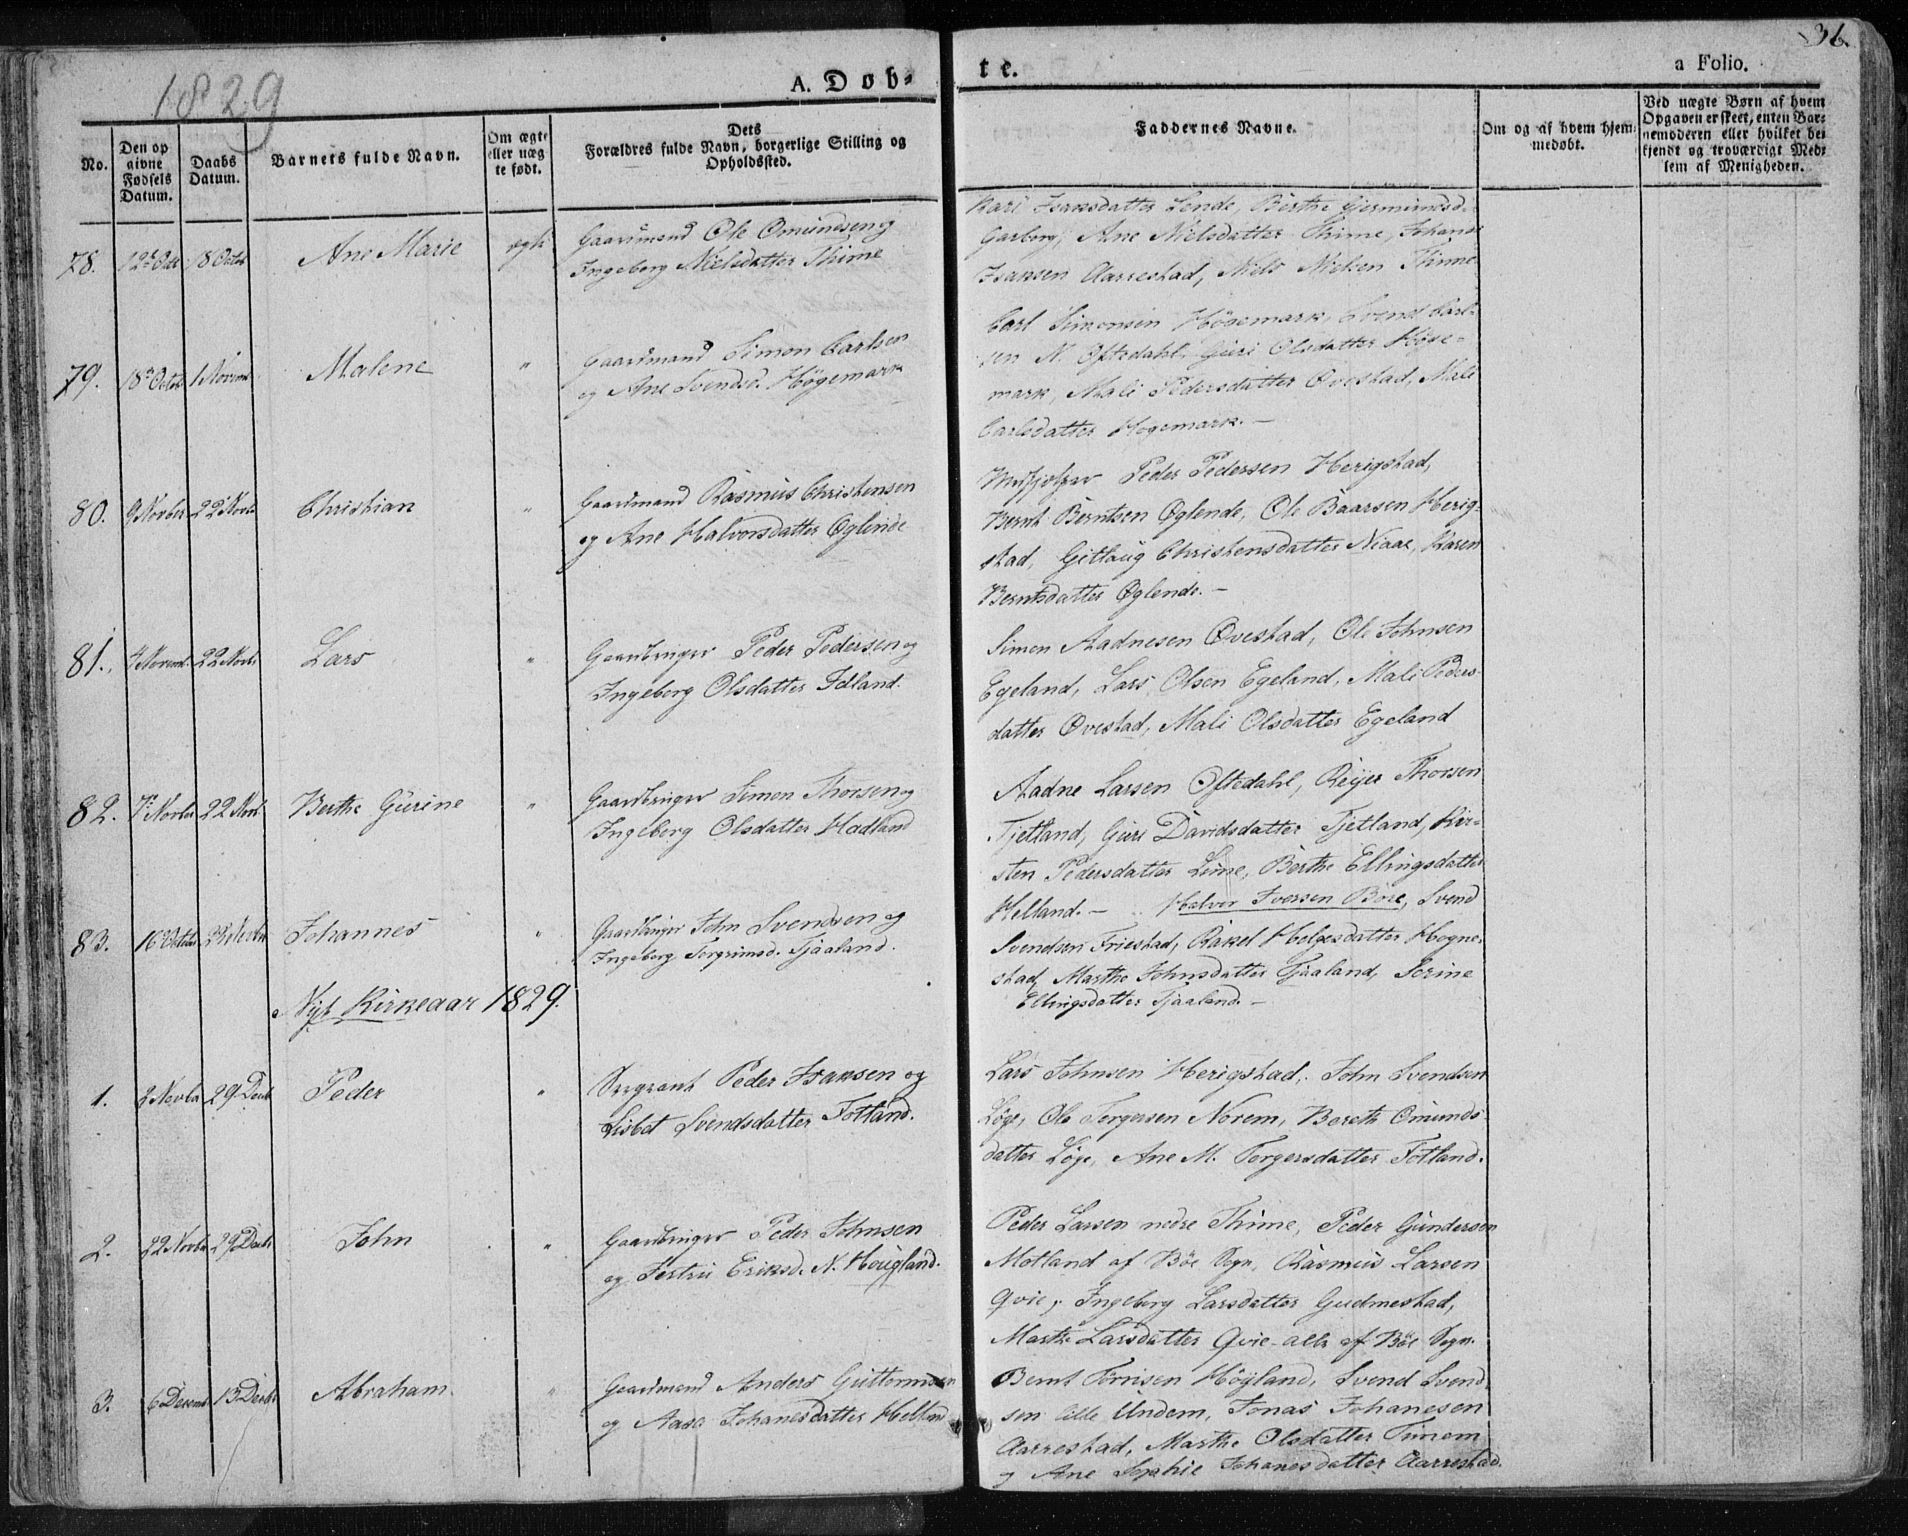 36.
1829
A. Døb-
te.
a Folio.
No.
Den op
givne
Fødsels
Datum.
Daabs
Datum.
Barnets fulde Navn.
Om ægte
eller uæg
te født.
Dets
Forældres fulde Navn, borgerlige Stilling og
Opholdssted.
Faddernes Navne.
Om og af hvem hjem-
medøbt.
Ved uægte Børn af hvem
Opgaven er skeet, enten Bar-
nemoderen eller hvilket be
kjendt og troværdigt Med-
lem af Menigheden.
78. 12te Octr 18 Octbr Ane Marie ægte
Gaardmand Ole Omundsen og
Ingeborg Nielsdatter Thime
Kari Isaksdatter Lende, Birthe Gjermundsd.
Garborg, Ane Nielsdatter Thime, Johans
Isaksen Aarrestad, Niels Nielsen Thime
79. 18de Octob 1 Novemb Malene "
Gaardmand Simon Carlsen
og Ane Svendsd. Høgemark
Carl Simonsen Høgemark, Svend Carl-
sen N. Oftedahl, Guri Olsdatter Høge-
mark, Mali Pedersdatter Ovestad, Mali
Carlsdatter Høgemark. —
80. 9 Novber 22 Novb. Christian "
Gaardmand Rasmus Christensen
og Ane Halvorsdatter Øglende
Medhjelper Peder Pedersen Herigstad,
Bernt Berntsen Øglende, Ole Baarsen Herig-
stad, Gitlaug Christensdatter Niaae, Karen
Berntsdatter Øglende. —
81. 4 Novemb. 22 Novbr Lars "
Gaardbruger Peder Pedersen og
Ingeborg Olsdatter Idland.
Simon Aadnesen Ovestad, Ole Johnsen
Egeland, Lars Olsen Egeland, Mali Peders-
datter Ovestad, Mali Olsdatter Egeland
82. 7de Novbr 22 Novb. Berthe Gurine "
Gaardbruger Simon Thorsen og
Ingeborg Olsdatter Hadland
Aadne Larsen Oftedahl, Reijer Thorsen
Tjetland, Guri Davidsdatter Tjetland, Kir-
sten Pedersdatter Lime, Berthe Ellingsdatter
Helland. —
83. 16 Octbr 22 Novbr Johannes "
Gaardbruger John Svendsen og
Ingeborg Torgrimsd. Tjaaland.
Halvor Iversen Bore, Svend
Svendsen Friestad, Rakel Helgesdatter Hogne-
stad, Marthe Johnsdatter Tjaaland, Serine
Ellingsdatter Tjaaland. —
Nyt Kirkeaar 1829.
1. 2 Novbr 29 Decb Peder "
Sergeant Peder Isaksen og
Lisbet Svendsdatter Fotland.
Lars Johnsen Herigstad, John Svendsen
Løge, Ole Torgersen Norem, Berethe Omunds
datter Løge, Ane M. Torgersdatter Fotland.
2. 22 Novbr 29 Decbr John "
Gaardbruger Peder Johnsen
og Jertru Eriksd. N. Hougland.
Peder Larsen nedre Thime, Peder Gundersen
Motland af Böe Sogn, Rasmus Larsen
Qvie, Ingeborg Larsdatter Gudmestad,
Marthe Larsdatter Qvie alle af Böe Sogn.
3. 6 Decemb 13 Decbr Abraham "
Gaardmand Anders Guttormsen
og Aasa Johanesdatter Helland
Bernt Tønisen Høyland, Svend Svend-
sen lille Undem, Jonas Johanesen
Aarrestad, Marthe Olsdatter Timem
og Ane Sophie Johanesdatter Aarrestad.